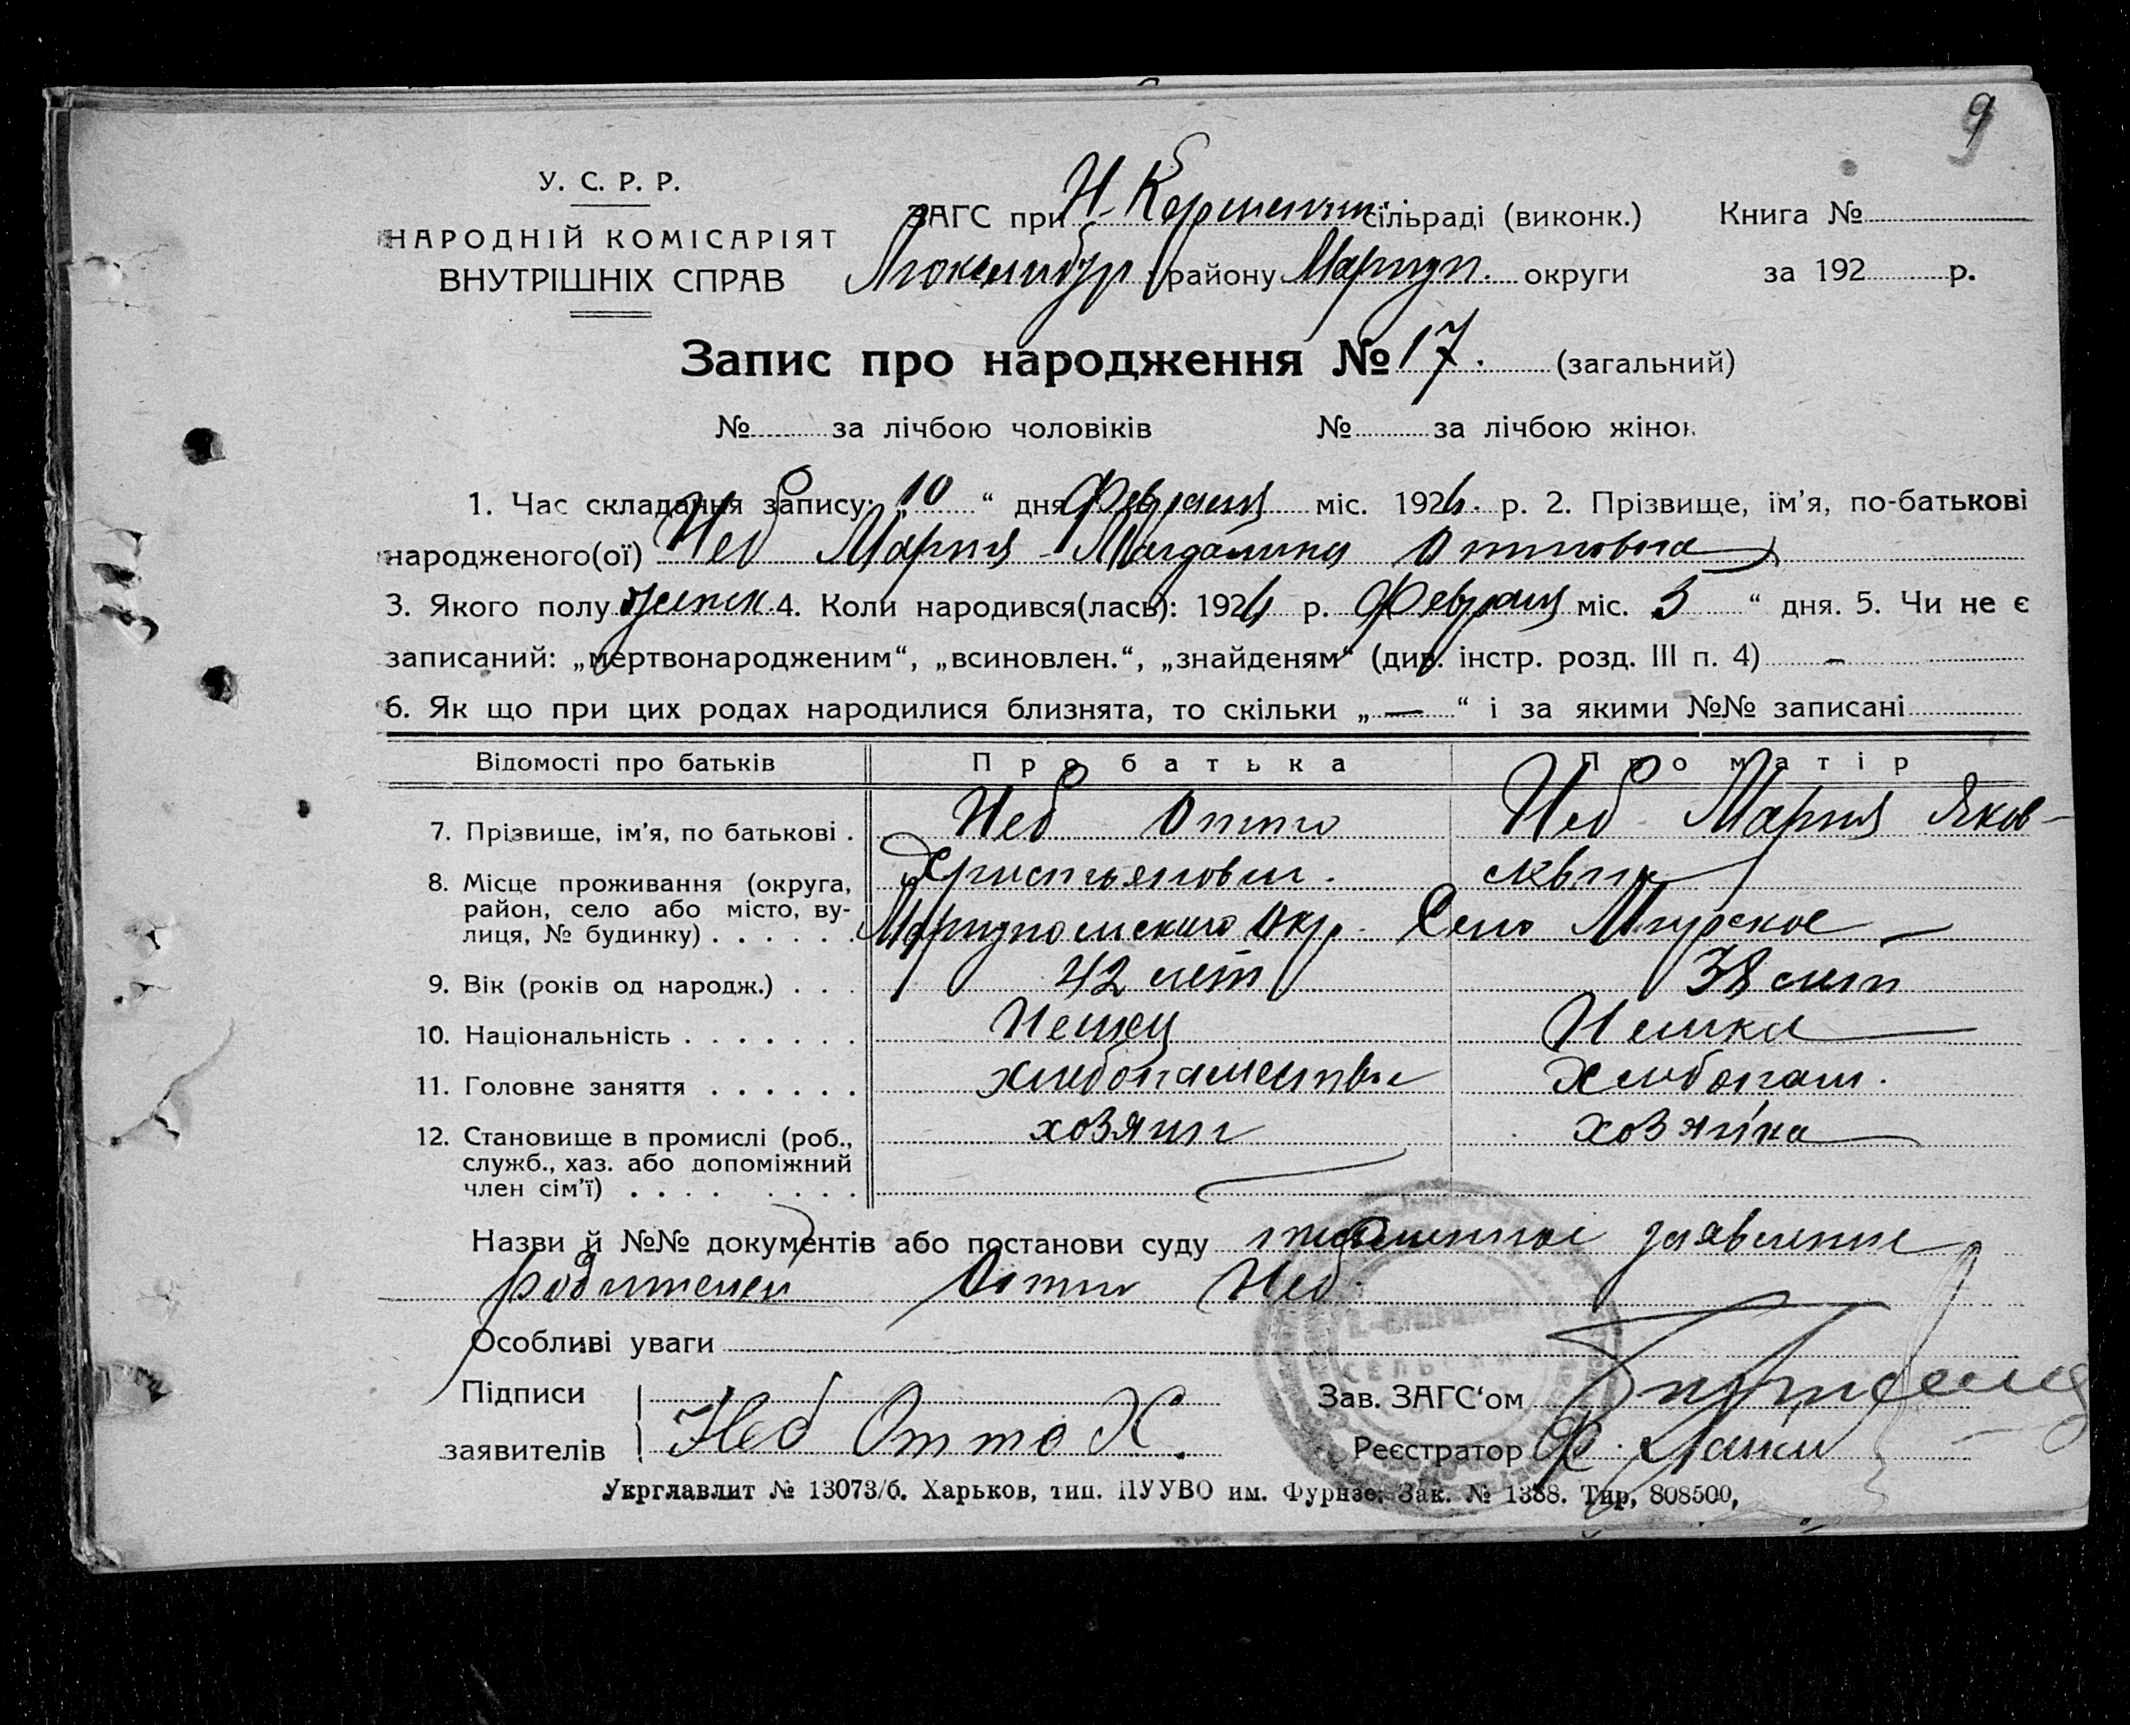 9
У. С. Р. Р.
НАРОДНІЙ КОМІСАРІЯТ
ВНУТРІШНІХ СПРАВ
ЗАГС при Н- сільраді (виконк.) Книга №
району Мариуп. округи за 192 р.
Запис про народження № 17. (загальний)
№ за лічбою чоловіків № за лічбою жінок
1. Час складання запису: „10“ дня Февраля міс. 192 р. 2. Прізвище, ім’я, по-батькові
народженого(ої) Неб Мария-Магдалина Оттовна
3. Якого полу женск 4. Коли народився(лась): 192 р. Февраля міс. 5 “ дня. 5. Чи не є
записаний: „мертвонародженим“, „всиновлен.“, „знайденям“ (див. інстр. розд. III п. 4) –
6. Як що при цих родах народилися близнята, то скільки „—“ і за якими №№ записані
Відомості про батьків Про батька Про матір
7. Прізвище, ім’я, по батькові . Неб Отто Неб Мария Яков-
Християнович.
8. Місце проживання (округа,
район, село або місто, ву-
лиця, № будинку) . . . . . . Мариупольского Окр. Село
9. Вік (років од народж.) . . . 42 лет 38 лет
10. Національність . . . . . . . Немец Немка
11. Головне заняття . . . . . . хлебопашество Хлебопаш.
12. Становище в промислі (роб., хозяин хозяйка
служб., хаз. або допоміжний
член сім’ї) . . . . . . . .
Назви й №№ документів або постанови суду заявление
родителей Отто Неб.
Особливі уваги
Підписи Зав. ЗАГС‘ом
заявителів Неб Отто Х. Реєстратор Ф.
Укрглавлит № 13073/б. Харьков, тип. ПУУВО им. Фрунзе. Зак. № 1388. Тир, 808500,